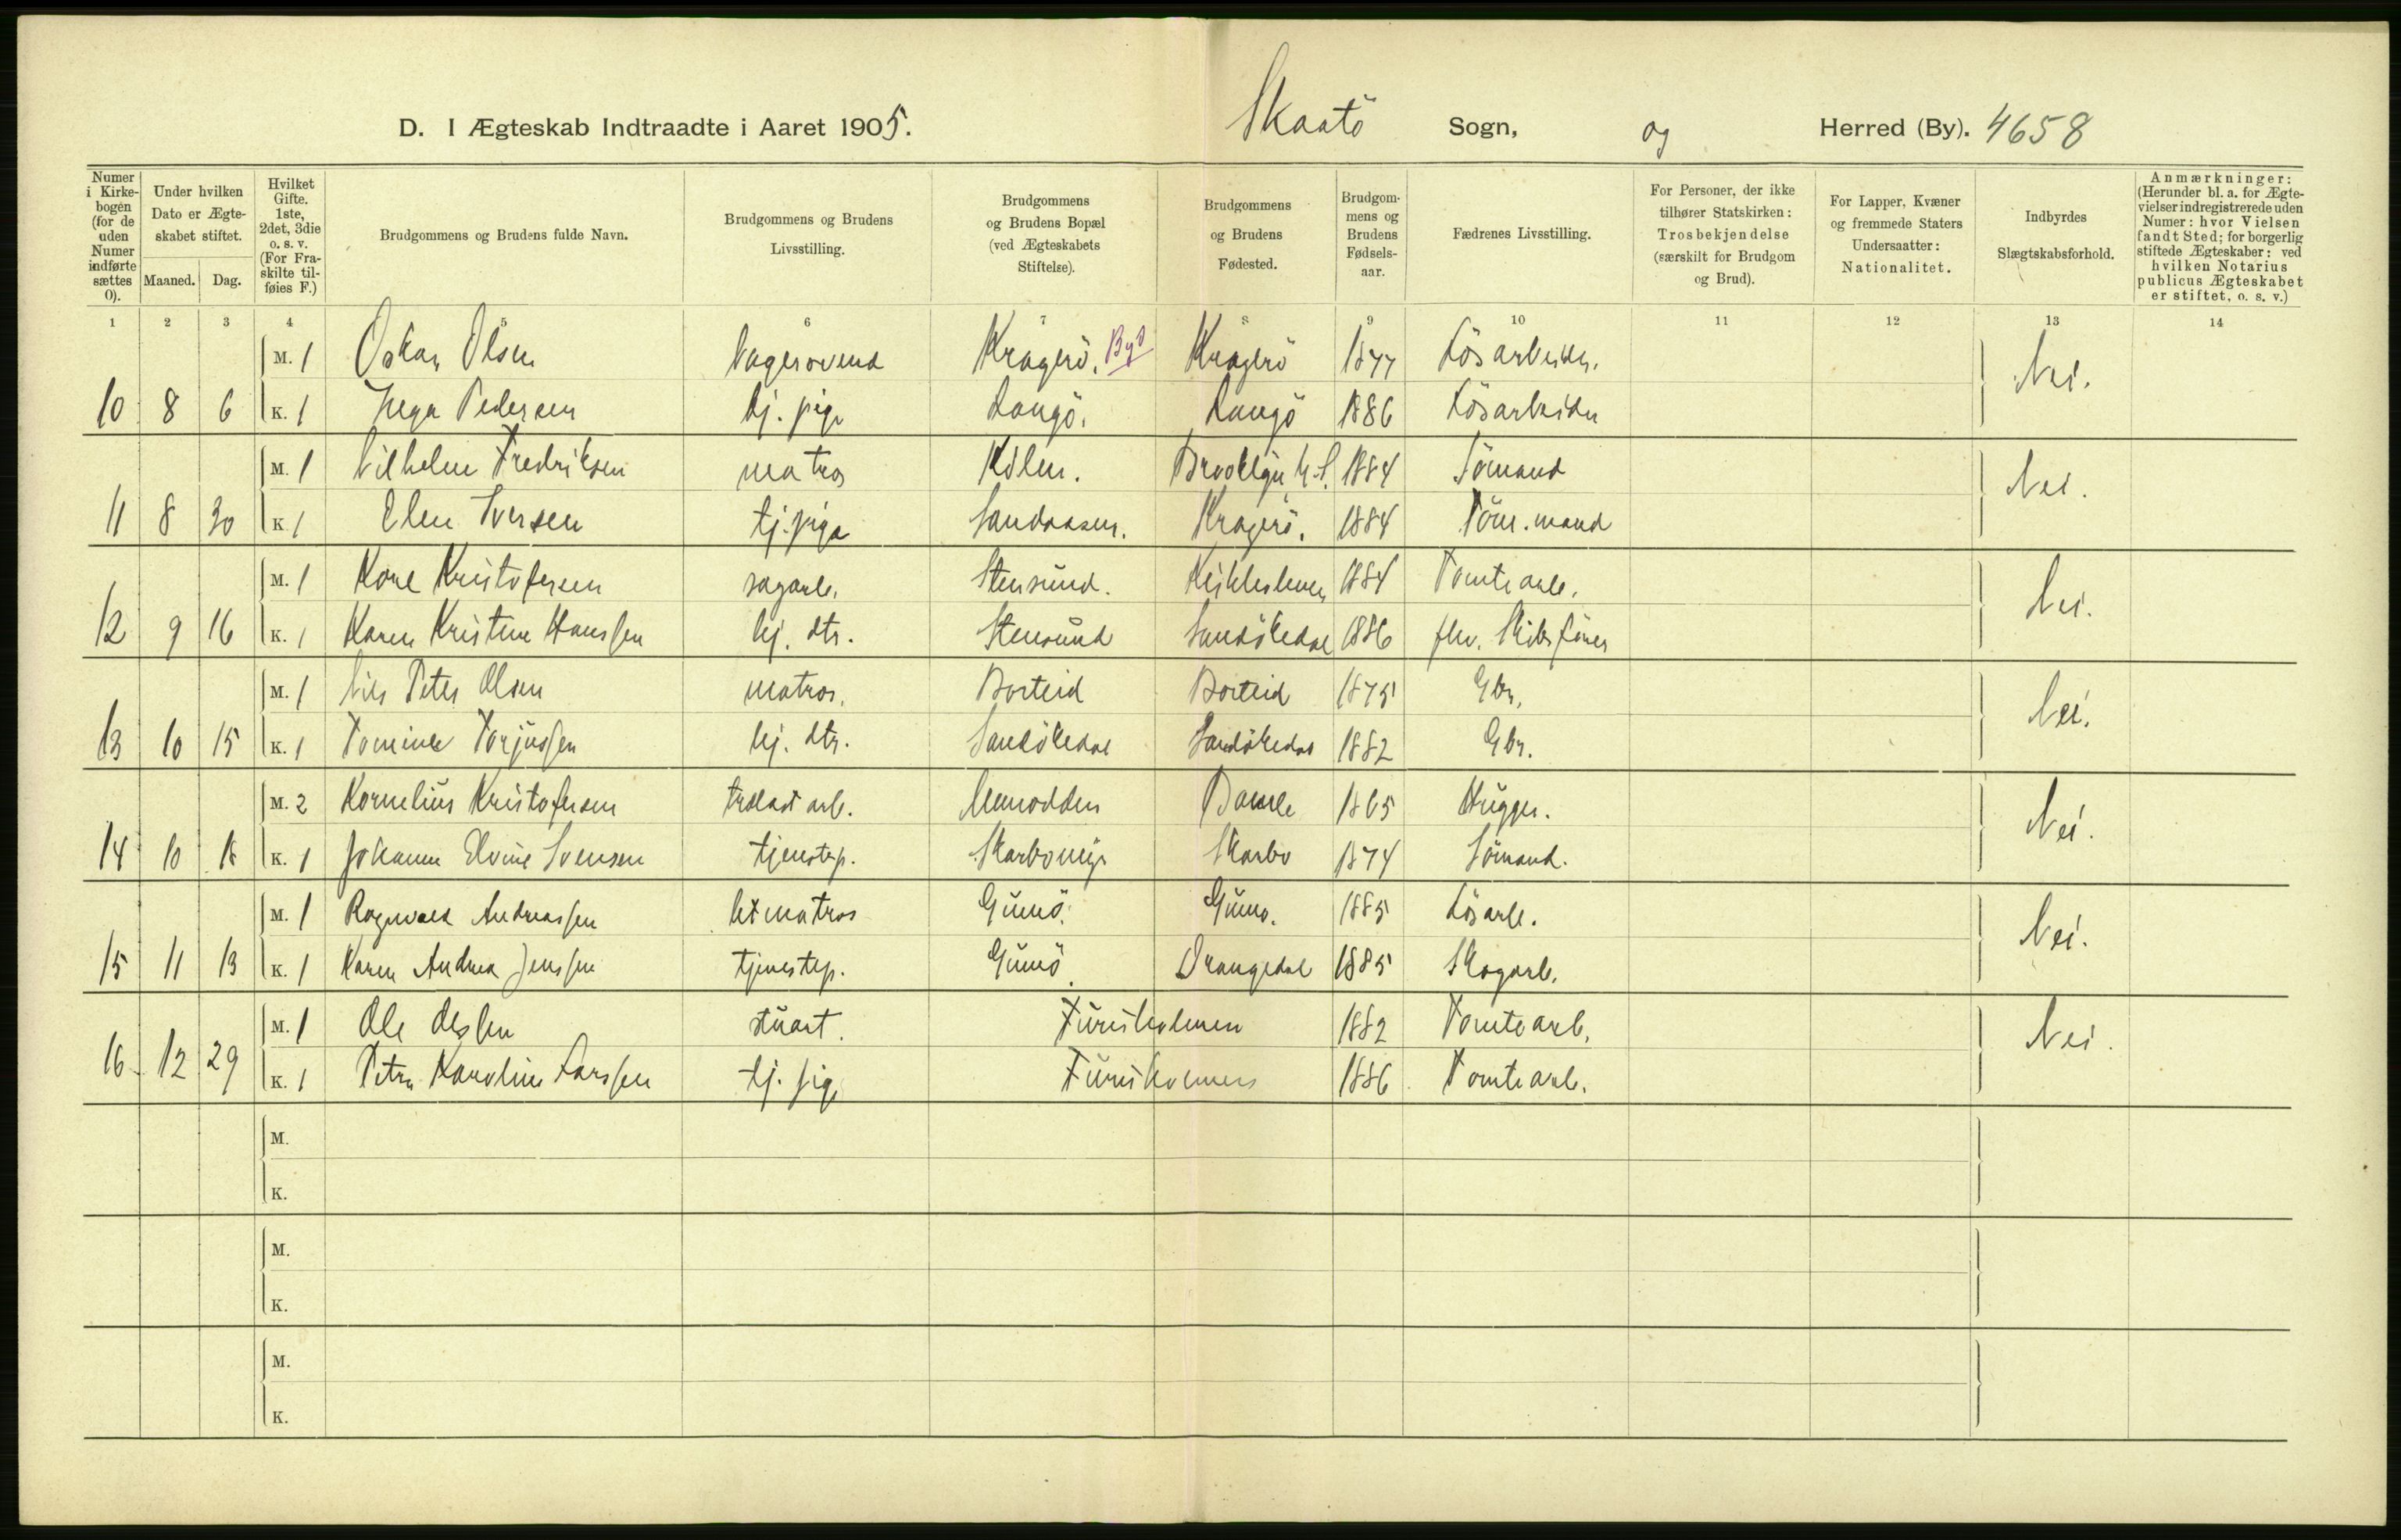 D. I Ægteskab Indtraadte i Aaret 1905. Skaatö Sogn, og Herred (By). 4658
Numer i Kirkebogen (for de uden Numer indførte sættes 0).
Under hvilken Dato er Ægteskabet stiftet.
Maaned. Dag.
Hvilket Gifte. 1ste, 2det, 3die o. s. v. (For Fraskilte tilføies F.)
Brudgommens og Brudens fulde Navn.
Brudgommens og Brudens Livsstilling.
Brudgommens og Brudens Bopæl (ved Ægteskabets Stiftelse).
Brudgommens og Brudens Fødested.
Brudgommens og Brudens Fødselsaar.
Fædrenes Livsstilling.
For Personer, der ikke tilhører Statskirken: Trosbekjendelse (særskilt for Brudgom og Brud).
For Lapper, Kvæner og fremmede Staters Undersaatter: Nationalitet.
Indbyrdes Slægtskabsforhold.
Anmærkninger: (Herunder bl. a. for Ægtevielser indregistrerede uden Numer: hvor Vielsen fandt Sted; for borgerlig stiftede Ægteskaber: ved hvilken Notarius publicus Ægteskabet er stiftet, o. s. v.)
1 2 3 4 5 6 7 8 9 10 11 12 13 14
M. 1 Oskar Olsen Kragerö. By Kragerö 1877 Lösarbeider. Nei.
10 8 6 K. 1 Inga Pedersen tj. pige Langö. Langö 1886 Lösarbeider
M. 1 Vilhelm Fredriksen matros Brooklyn 1884 Sömand Nei.
11 8 30 K. 1 Elen Iversen tj. pige Sandaasen. Kragerö. 1884 Töm.mand
M. 1 Kristofersen sagarb. Stensund. 1884 Tomtearb. Nei.
12 9 16 K. 1 Karen Kristine Hanssen hj. dtr. Stensund Sandökedal 1886 fhv. Skibsförer
M. 1 Nils Peter Olsen matros. Borteid Borteid 1875 Gbr. Nei.
13 10 15 K. 1 Tomine Torjussen hj. dtr. Sandökedal Sandökedal 1882 Gbr.
M. 2 Kornelius Kristofersen trælast arb. Bamle 1865 Hugger. Nei.
14 10 18 K. 1 Johanne Elvine Svensen tjenestep. Skarbo 1874 Sömand.
M. 1 Ragnvald Andreassen matros Gumö. Gumö. 1885 Lösarb. Nei.
15 11 13 K. 1 Karen Andrea Jenssen tjenestep. Gumö Drangedal 1885 Skogarb.
M. 1 Ole Olsen stuart. Furuholmen 1882 Tomtearb. Nei.
16 12 29 K. 1 Petra Karoline Larssen tj. pige Furuholmen 1886 Tomtearb.
M.
K.
M.
K.
M.
K.